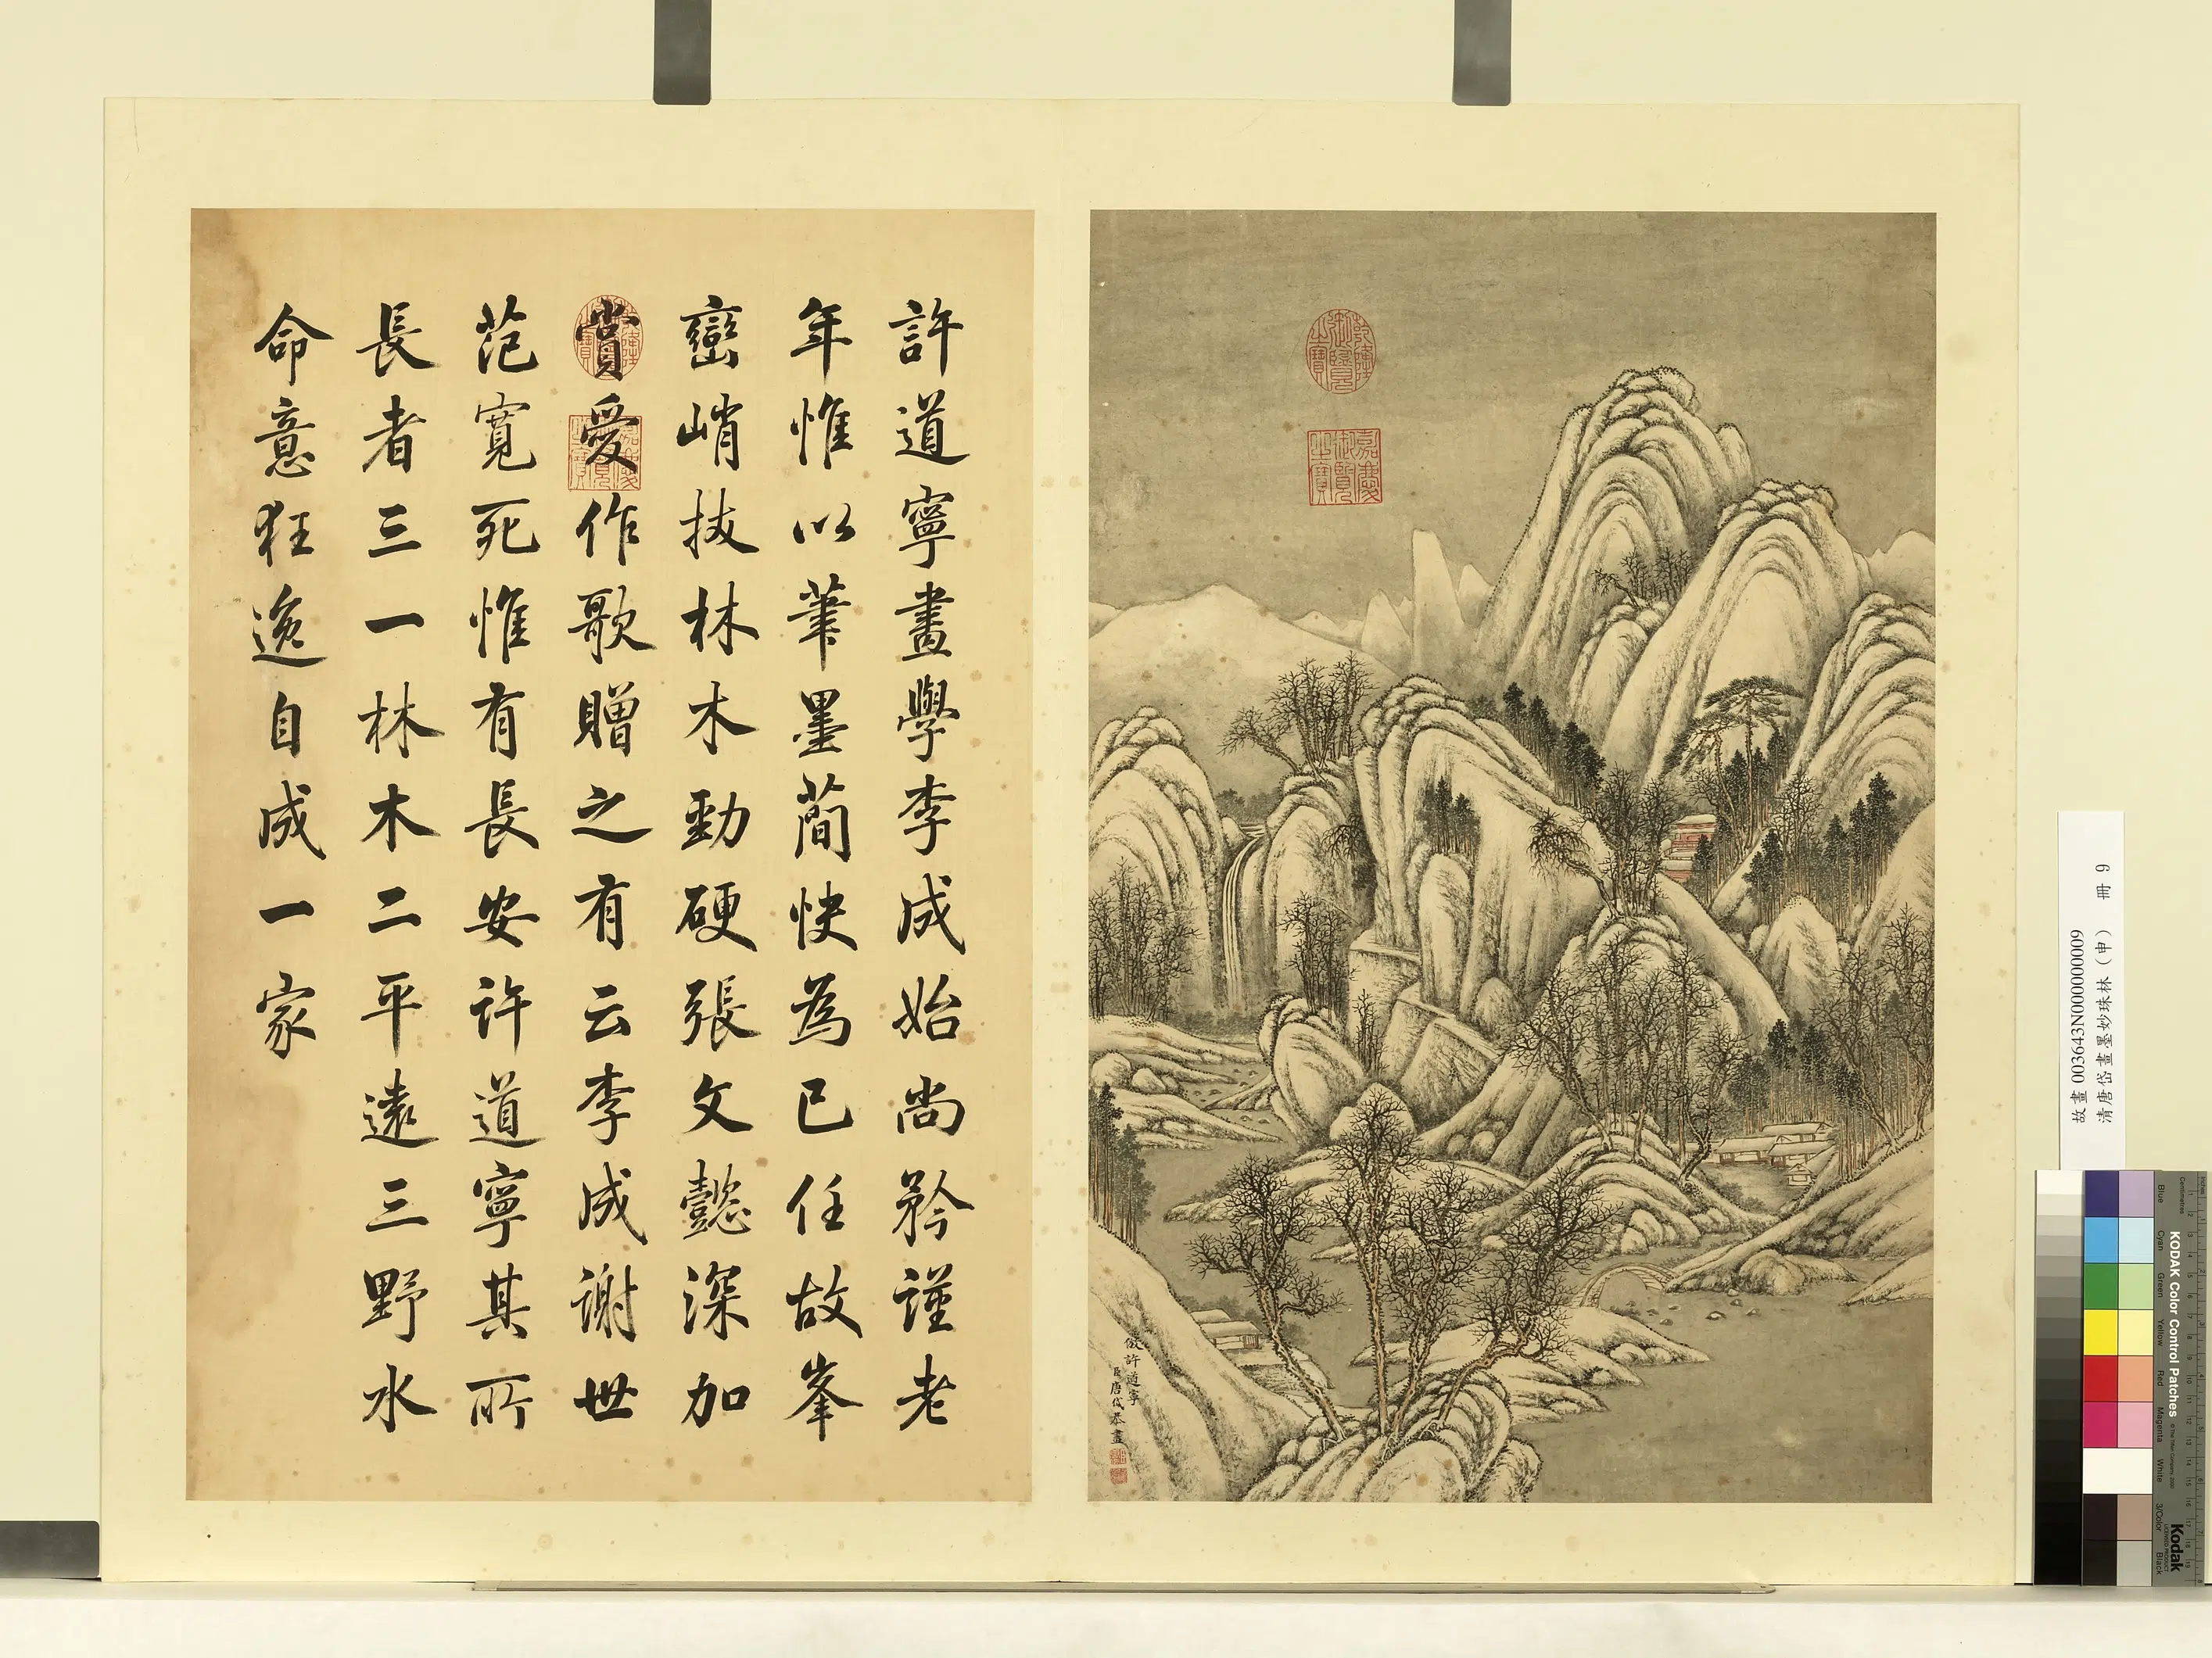 許道寧畫學李成始尚矜謹老
年惟以筆墨簡快為己任故峯
巒峭拔林木勁硬張文懿深加
賞愛作歌贈之有云李成謝世
范寬死惟有長安許道寧其所
長者三一林木二平遠三野水
命意狂逸自成一家
乾隆御覽之寶
嘉慶御覽之寶
倣許道寧
臣唐岱恭畫
故畫 003643N000000009
清唐岱畫墨妙珠林(申) 冊 9
KODAK Color Control Patches
Blue
Cyan
Green
Yellow
Red
Magenta
White
3/Color
Black
Kodak
LICENSED PRODUCT
Centimetres
Inches